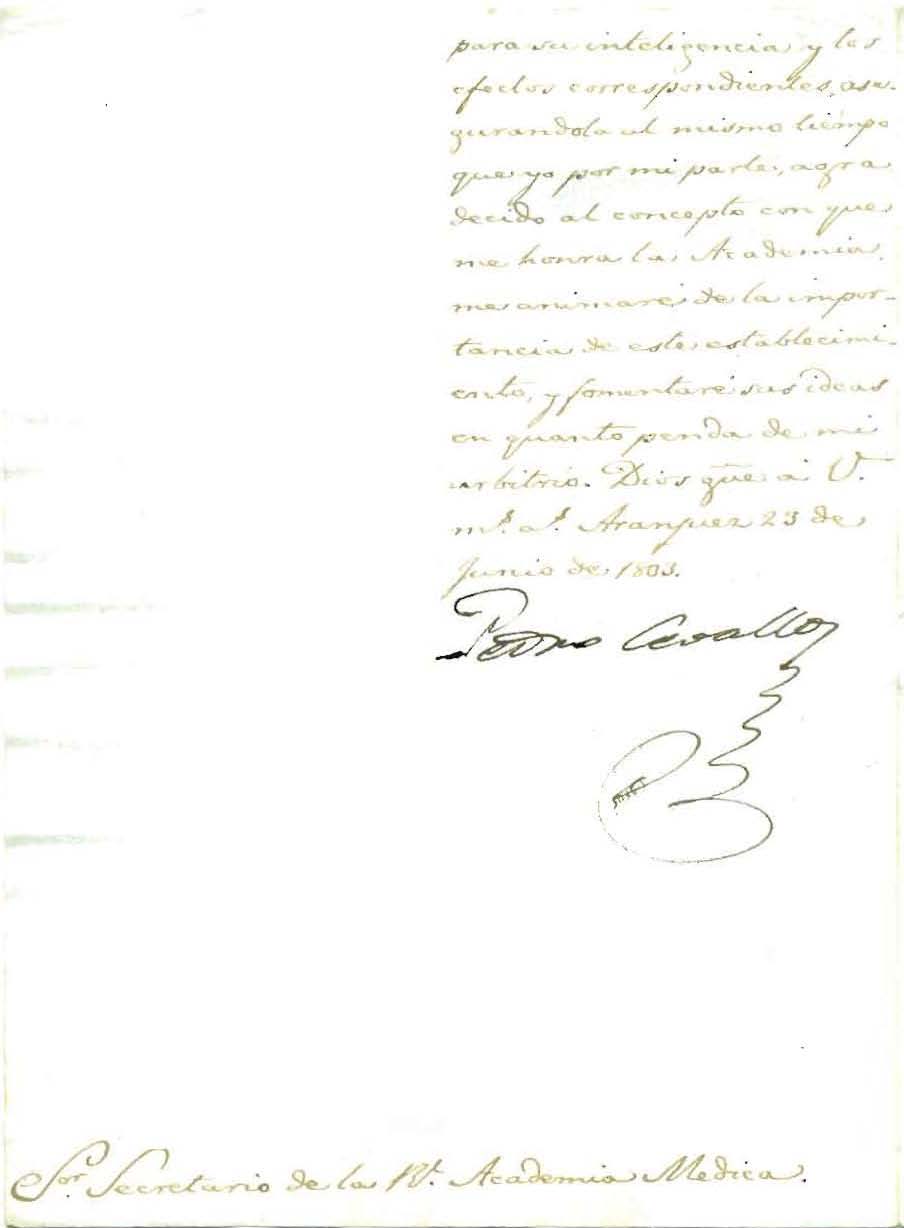 para su inteligencia y los
efectos correspondientes, ase-
gurandola al mismo tiempo
que yo por mi parte, agra
decido al concepto con que
me honra la Academia,
me animaré de la impor-
tancia de este establecimi-
ento, y fomentaré sus ideas
en quanto penda de mi
arbitrio. Dios gũe a V.
m.s a.s Aranjuez 23 de
Junio de 1803.
Pedro Cevallos
Sor. Secretario de la Rl. Academia Medica.